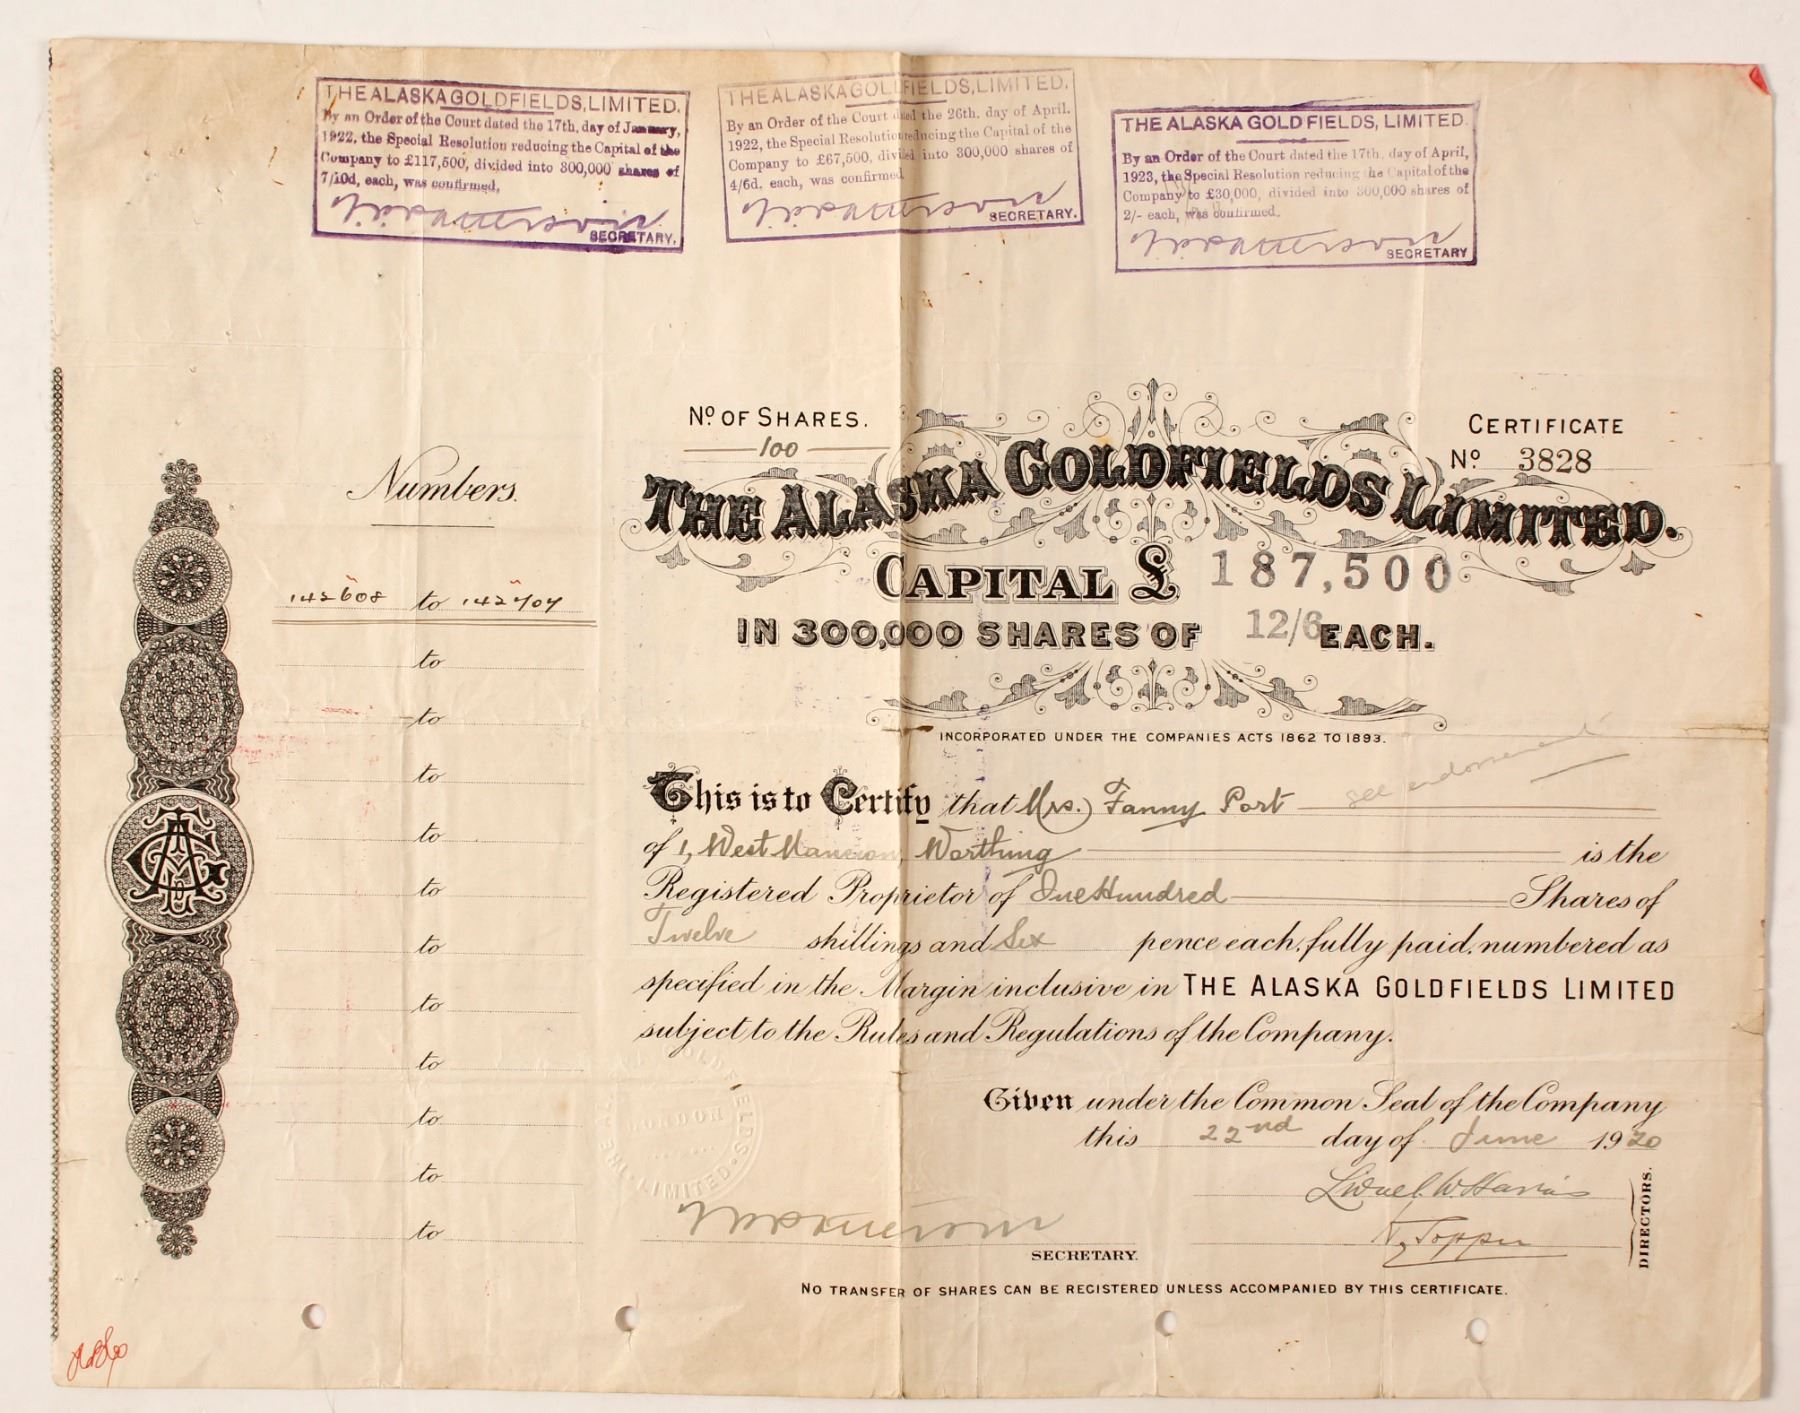 THE ALASKA GOLDFIELDS, LIMITED.
By an Order of the Court dated the 17th. day of January,
1922, the Special Resolution reducing the Capital of the
Company to £117,500, divided into 300,000 shares of
7/10d, each, was confirmed,
SECRETARY.
THE ALASKA GOLDFIELDS, LIMITED.
By an Order of the Court dated the 26th. day of April.
1922, the Special Resolution reducing the Capital of the
Company to £67,500, divided into 300,000 shares of
4/6d. each, was confirmed
SECRETARY.
THE ALASKA GOLDFIELDS, LIMITED.
By an Order of the Court dated the 17th. day of April,
1923, the Special Resolution reducing the Capital of the
Company to £30,000, divided into 300,000 shares of
2/- each, was confirmed.
SECRETARY
No OF SHARES.
100
CERTIFICATE
No 3828
THE ALASKA GOLDFIELDS LIMITED.
CAPITAL £ 187,500
IN 300,000 SHARES OF 12/6 EACH.
INCORPORATED UNDER THE COMPANIES ACTS 1862 TO 1893.
see endorsement
Numbers.
142608 to 142707
to
to
to
to
to
to
to
to
to
to
to
This is to Certify that Mrs. Fanny Port
of 1, West Mansion, Worthing is the
Registered Proprietor of One Hundred Shares of
Twelve shillings and Six pence each, fully paid, numbered as
specified in the Margin inclusive in THE ALASKA GOLDFIELDS LIMITED
subject to the Rules and Regulations of the Company.
Given under the Common Seal of the Company
this 22nd day of June 1920
THE ALASKA GOLDFIELDS LIMITED.
LONDON
Lionel W Harris
DIRECTORS.
SECRETARY.
NO TRANSFER OF SHARES CAN BE REGISTERED UNLESS ACCOMPANIED BY THIS CERTIFICATE.